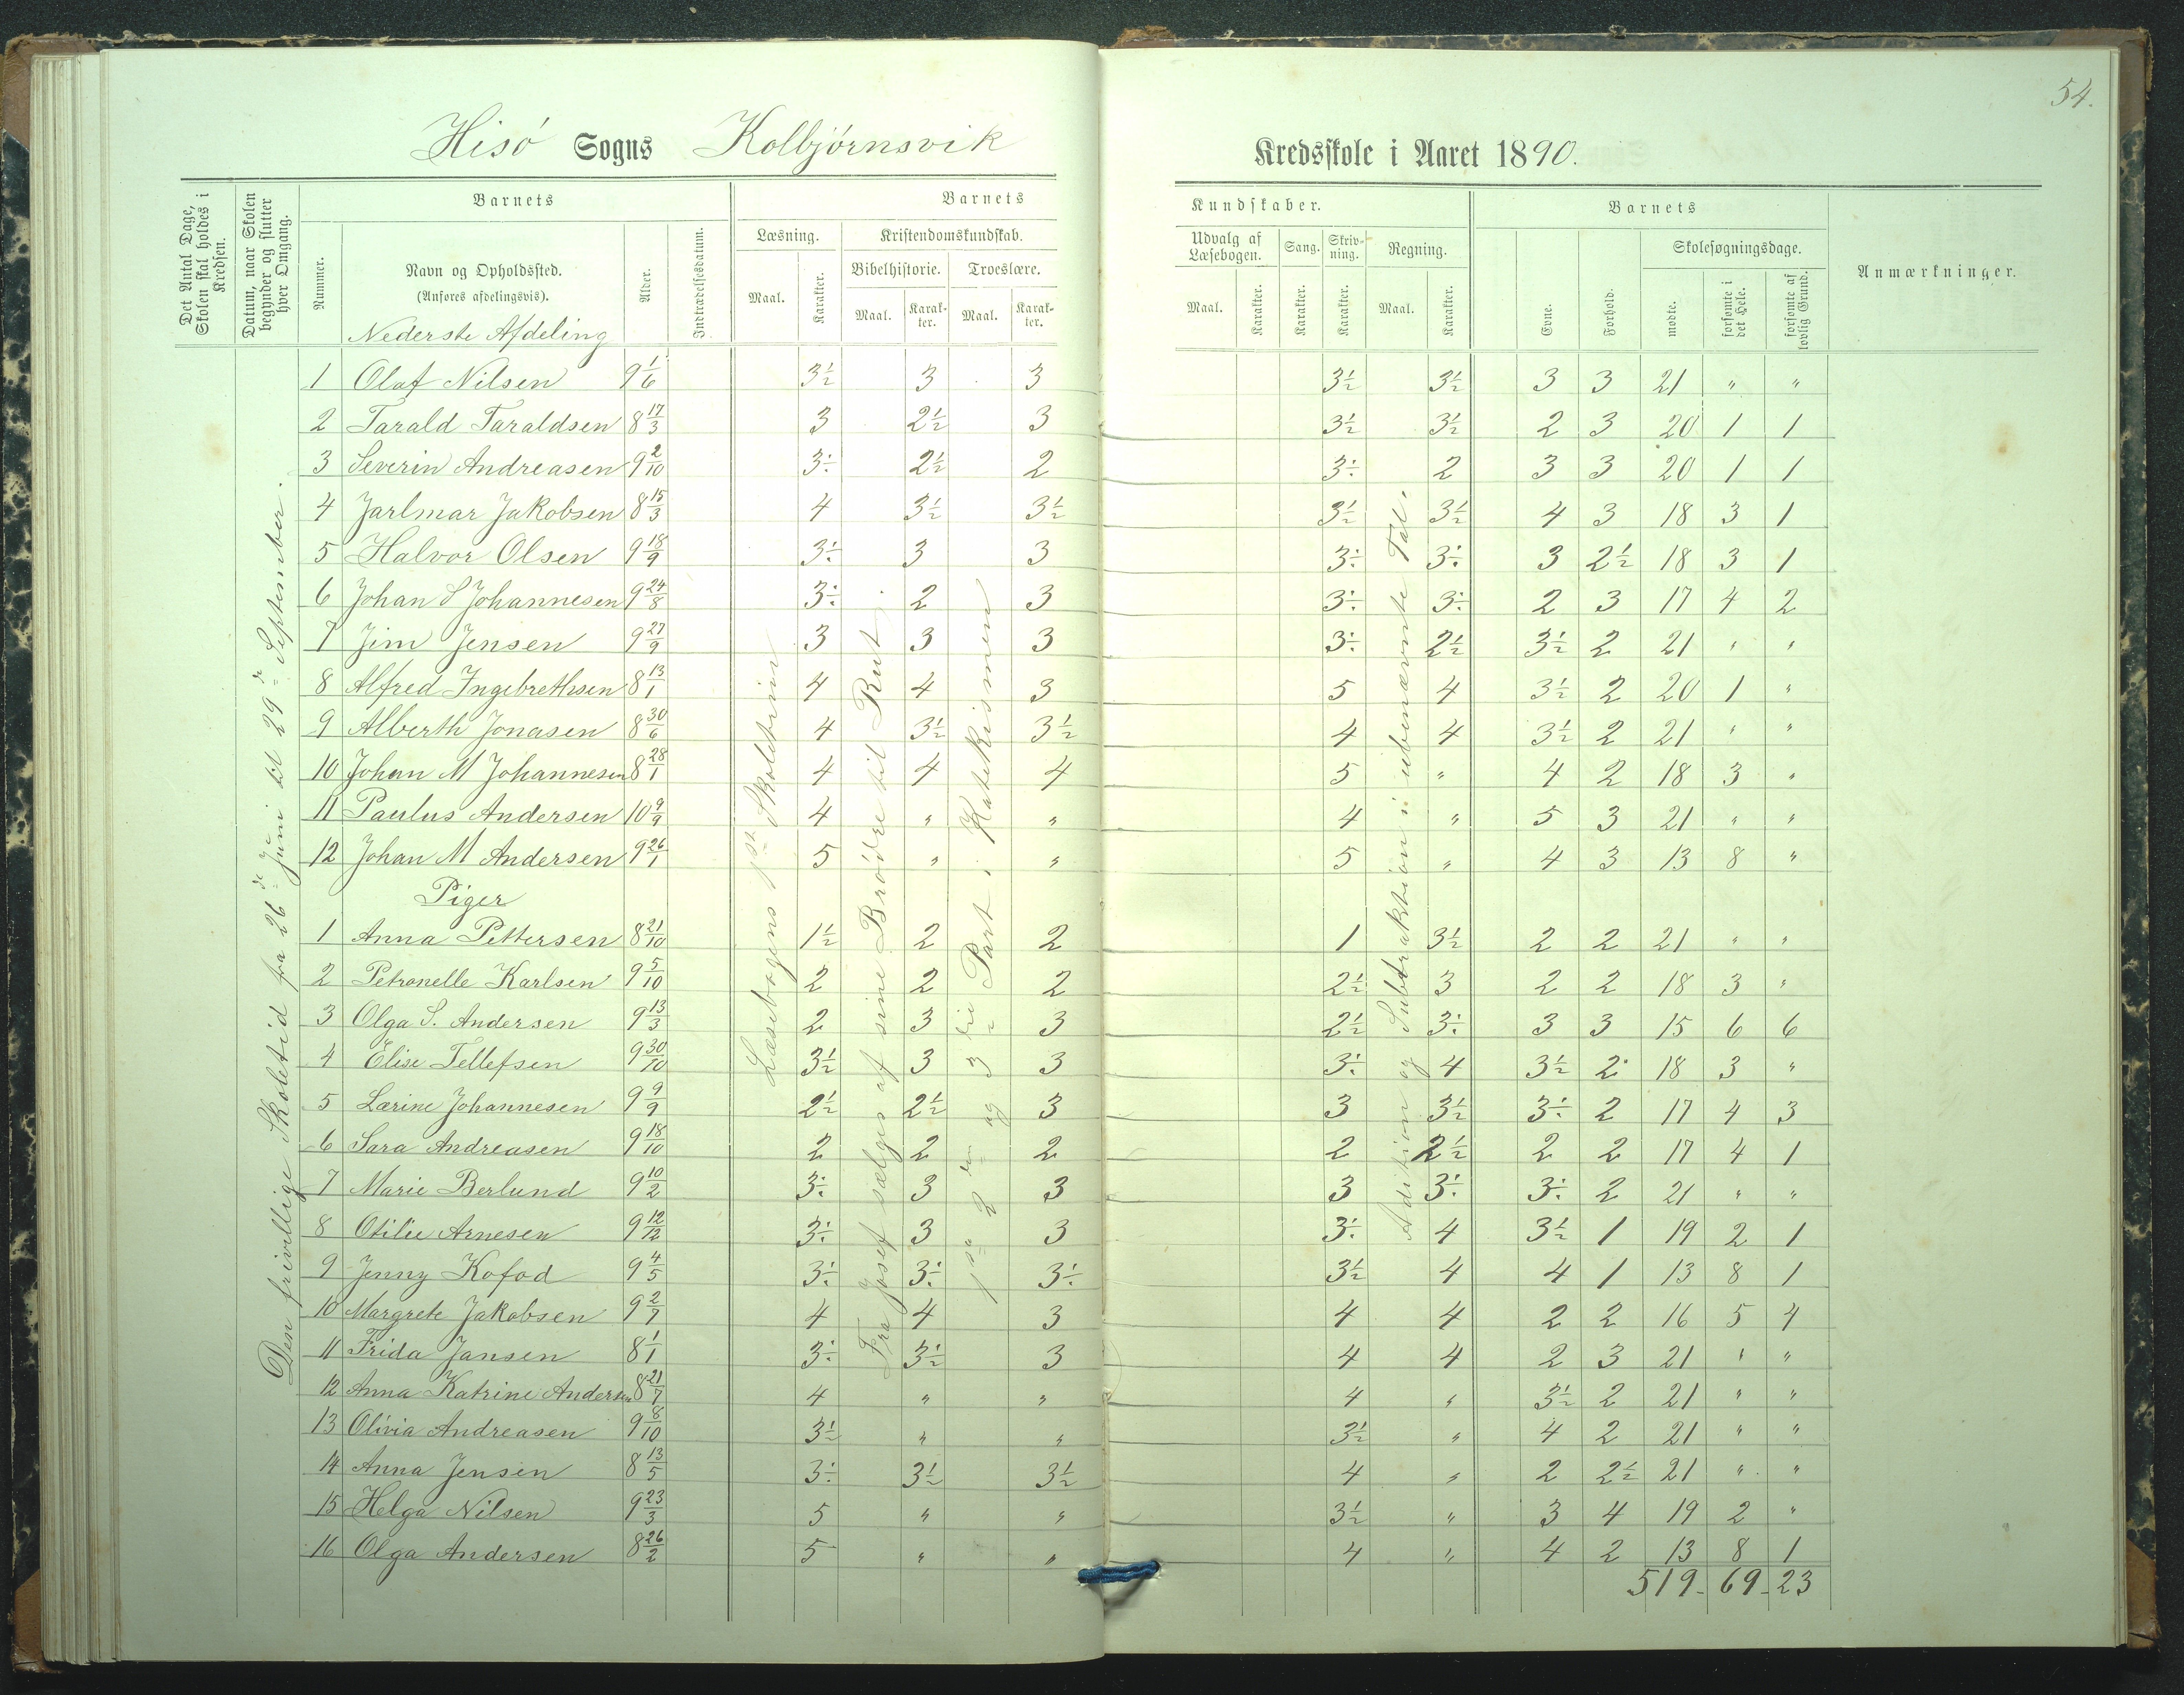 54.
Hisö Sogns Kolbjörnsvik Kredsskole i Aaret 1890.
Det Antal Dage, Skolen skal holdes i Kredsen.
Datum, naar Skolen begynder og slutter hver Omgang.
Barnets
Nummer.
Navn og Opholdssted.
(Anføres afdelingsvis).
Nederste Afdeling
Alder.
Indtrædelsesdatum.
Barnets Kundskaber.
Læsning.
Maal. Karakter.
Kristendomskundskab.
Bibelhistorie. Troeslære.
Maal. Karakter. Maal. Karakter.
Udvalg af Læsebogen.
Maal. Karakter.
Sang.
Karakter.
Skrivning.
Karakter.
Regning.
Maal. Karakter.
Barnets
Evne. Forhold.
Skolesøgningsdage.
mødte. forsømte i det Hele. forsømte af lovlig Grund.
Anmærkninger.
Den frivillige Skoletid fra 26de Juni til 29de September.
Læsebogens 1ste Skoletrin
Fra Josef sælges af sine Brødre til Rut.
1ste 2den og 3die Part. Katekismen
Adition og Subtraktion i ubenævnte Tal.
1 Olaf Nilsen 9 1/6 3½ 3 3 3½ 3½ 3 3 21 " "
2 Tarald Taraldsen 8 17/3 3 2½ 3 3½ 3½ 2 3 20 1 1
3 Severin Andreasen 9 2/10 3÷ 2½ 2 3÷ 2 3 3 20 1 1
4 Jarlmar Jakobsen 8 15/3 4 3½ 3½ 3½ 3½ 4 3 18 3 1
5 Halvor Olsen 9 18/9 3÷ 3 3 3÷ 3÷ 3 2½ 18 3 1
6 Johan S Johannesen 9 24/8 3÷ 2 3 3÷ 3÷ 2 3 17 4 2
7 Jim Jensen 9 27/9 3 3 3 3÷ 2½ 3½ 2 21 " "
8 Alfred Ingebrethsen 8 13/1 4 4 3 5 4 3½ 2 20 1 "
9 Alberth Jonasen 8 30/6 4 3½ 3½ 4 4 3½ 2 21 " "
10 Johan M Johannesen 8 28/1 4 4 4 5 " 4 2 18 3 "
11 Paulus Andersen 10 9/9 4 " " 4 " 5 3 21 " "
12 Johan M Andersen 9 26/1 5 " " 5 " 4 3 13 8 "
Piger
1 Anna Pettersen 8 21/10 1½ 2 2 1 3½ 2 2 21 " "
2 Petronelle Karlsen 9 5/10 2 2 2 2½ 3 2 2 18 3 "
3 Olga S. Andersen 9 13/3 2 3 3 2½ 3÷ 3 3 15 6 6
4 Elise Tellefsen 9 30/10 3½ 3 3 3÷ 4 3½ 2 18 3 "
5 Lærine Johannesen 9 9/9 2½ 2½ 3 3 3½ 3÷ 2 17 4 3
6 Sara Andreasen 9 18/10 2 2 2 2 2½ 2 2 17 4 1
7 Marie Berlund 9 10/2 3÷ 3 3 3 3÷ 3÷ 2 21 " "
8 Otilie Arnesen 9 12/12 3÷ 3 3 3÷ 4 3½ 1 19 2 1
9 Jenny Kofod 9 4/5 3÷ 3÷ 3÷ 3½ 4 4 1 13 8 1
10 Margrete Jakobsen 9 2/7 4 4 3 4 4 2 2 16 5 4
11 Frida Jansen 8 1/1 3÷ 3½ 3 4 4 2 3 21 " "
12 Anna Katrine Andersen 8 21/7 4 " " 4 " 3½ 2 21 " "
13 Olivia Andreasen 9 8/10 3½ " " 3½ " 4 2 21 " "
14 Anna Jensen 8 13/5 3÷ 3½ 3½ 4 " 2 2½ 21 " "
15 Helga Nilsen 9 23/3 5 " " 3½ " 3 4 19 2 "
16 Olga Andersen 8 26/2 5 " " 4 " 4 2 13 8 1
519 - 69 - 23